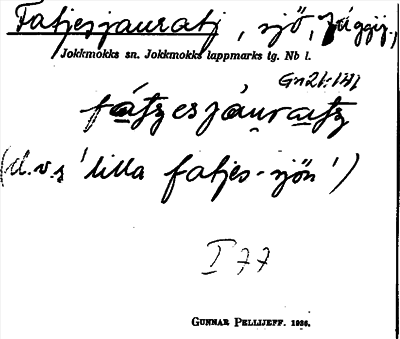 Fatjesjauratj, sjö,
Jokkmokks sn. Jokkmokks lappmarks tg. Nb l.
Gn 21:141
fátʒesjáuratʒ
(d.v.s 'lilla fatjes-sjön')
I 77
GUNNAR PELLIJEFF. 1936.